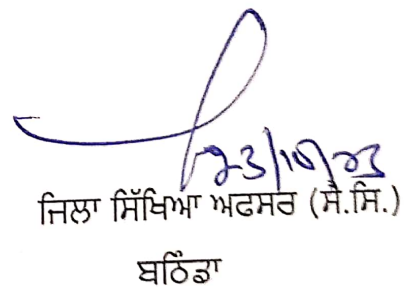 23/10/23
ਜਿਲਾ ਸਿੱਖਿਆ ਅਫਸਰ (ਸੈ.ਸਿ.)
ਬਠਿੰਡਾ